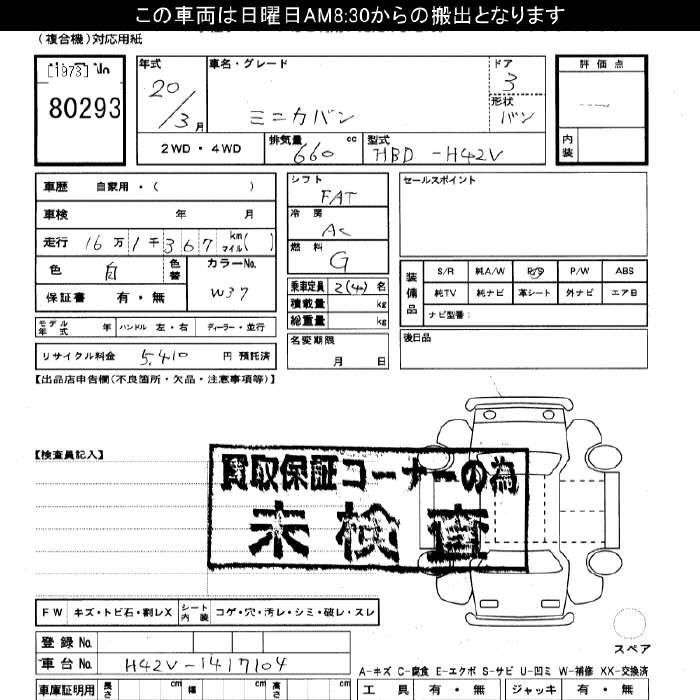 この車両は日曜日AM8:30からの搬出となります
(複合機)対応用紙
[1973]
80293
年式 20/3月
車名・グレード ミニカバン
ドア 3
形状 バン
評価点
内装
2WD・4WD
排気量 660 cc
型式 HBD-H42V
車歴 自家用・( )
車検 年 月
走行 16万1千367 km マイル( )
色 白 色替
カラーNo. W37
保証書 有・無
モデル年式 年 ハンドル 左・右 ディーラー・並行
リサイクル料金 5,410 円 預託済
シフト FAT
冷房 AC
燃料 G
乗車定員 2(4)名
積載量 kg
総重量 kg
名変期限 月 日
セールスポイント
装備品
S/R 純A/W P/S P/W ABS
純TV 純ナビ 革シート 外ナビ エアB
ナビ型番:
後日品
【出品店申告欄(不良箇所・欠品・注意事項等)】
【検査員記入】
買取保証コーナーの為
未検査
FW キズ・トビ石・割レX シート内装 コゲ・穴・汚レ・シミ・破レ・スレ
スペア
登録No.
車台No. H42V-1417104
A-キズ C-腐食 E-エクボ S-サビ U-凹ミ W-補修 XX-交換済
車庫証明用 長さ cm 幅 cm 高さ cm
工具 有・無 ジャッキ 有・無